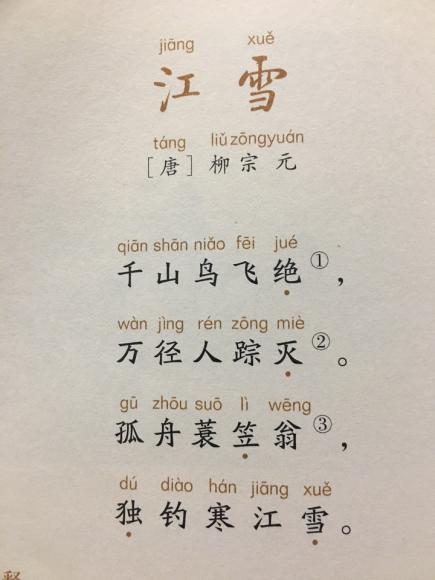 jiāng xuě
江雪
táng liǔ zōngyuán
[唐] 柳宗元
qiān shān niǎo fēi jué
千山鸟飞绝①，
wàn jìng rén zōng miè
万径人踪灭②。
gū zhōu suō lì wēng
孤舟蓑笠翁③，
dú diào hán jiāng xuě
独钓寒江雪。